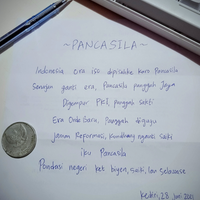 - PANCASILA -
Indonesia ora iso dipisahke karo Pancasila
Senajan ganti era, Pancasila panggah Jaya
Digempur PKI, panggah sakti
Era Orde Baru, panggah digugu
Jaman Reformasi, kondhang nganti saiki
iku Pancasila
Pondasi negeri ket biyen, saiki, lan selawase
Kediri, 28 Juni 2021